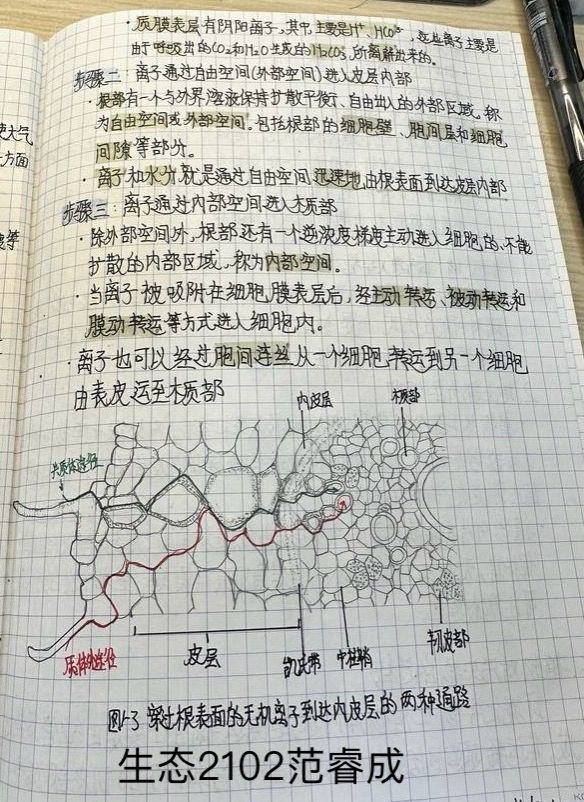 · 质膜表层有阴阳离子,其中主要是H⁺、HCO³⁻,这些离子主要是
由于呼吸出的CO₂和H₂O生成的H₂CO₃所离解出来的。
步骤二:离子通过自由空间(外部空间)进入皮层内部
· 根部有一个与外界溶液保持扩散平衡、自由出入的外部区域,称
为自由空间或外部空间。包括根部的细胞壁、胞间层和细胞
间隙等部分。
· 离子和水分就是通过自由空间迅速地由根表面到达皮层内部
步骤三:离子通过内部空间进入木质部
· 除外部空间外,根部还有一个逆浓度梯度主动进入细胞的、不能
扩散的内部区域,称为内部空间。
· 当离子被吸附在细胞膜表层后,经主动转运、被动转运和
膜动转运等方式进入细胞内。
· 离子也可以经过胞间连丝从一个细胞转运到另一个细胞
由表皮运至木质部
大气
方面
等
内皮层
木质部
共质体途径
质体外途径
皮层
凯氏带
中柱鞘
韧皮部
图1-3 穿过根表面的无机离子到达内皮层的两种通路
生态2102范睿成